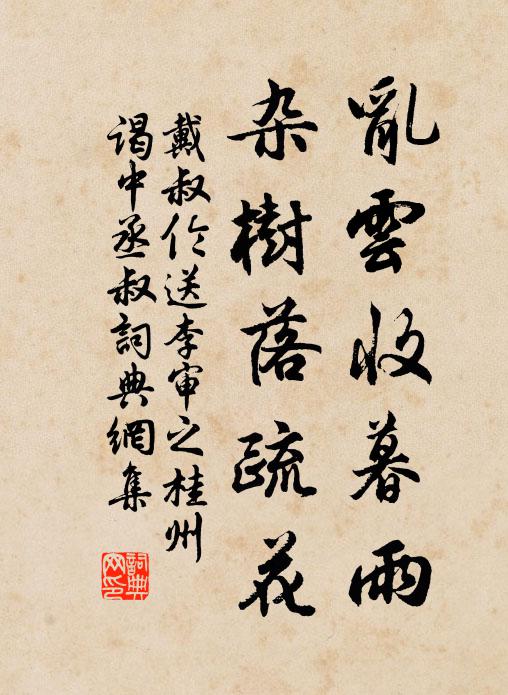 亂雲收暮雨
杂樹落疏花
戴叔伦送李审之桂州
谒中丞叔詞典網集
詞典網印